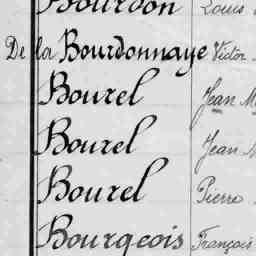 Bourdon Louis
De la Bourdonnaye Victor
Bourel Jean M
Bourel Jean M
Bourel Pierre
Bourgeois François